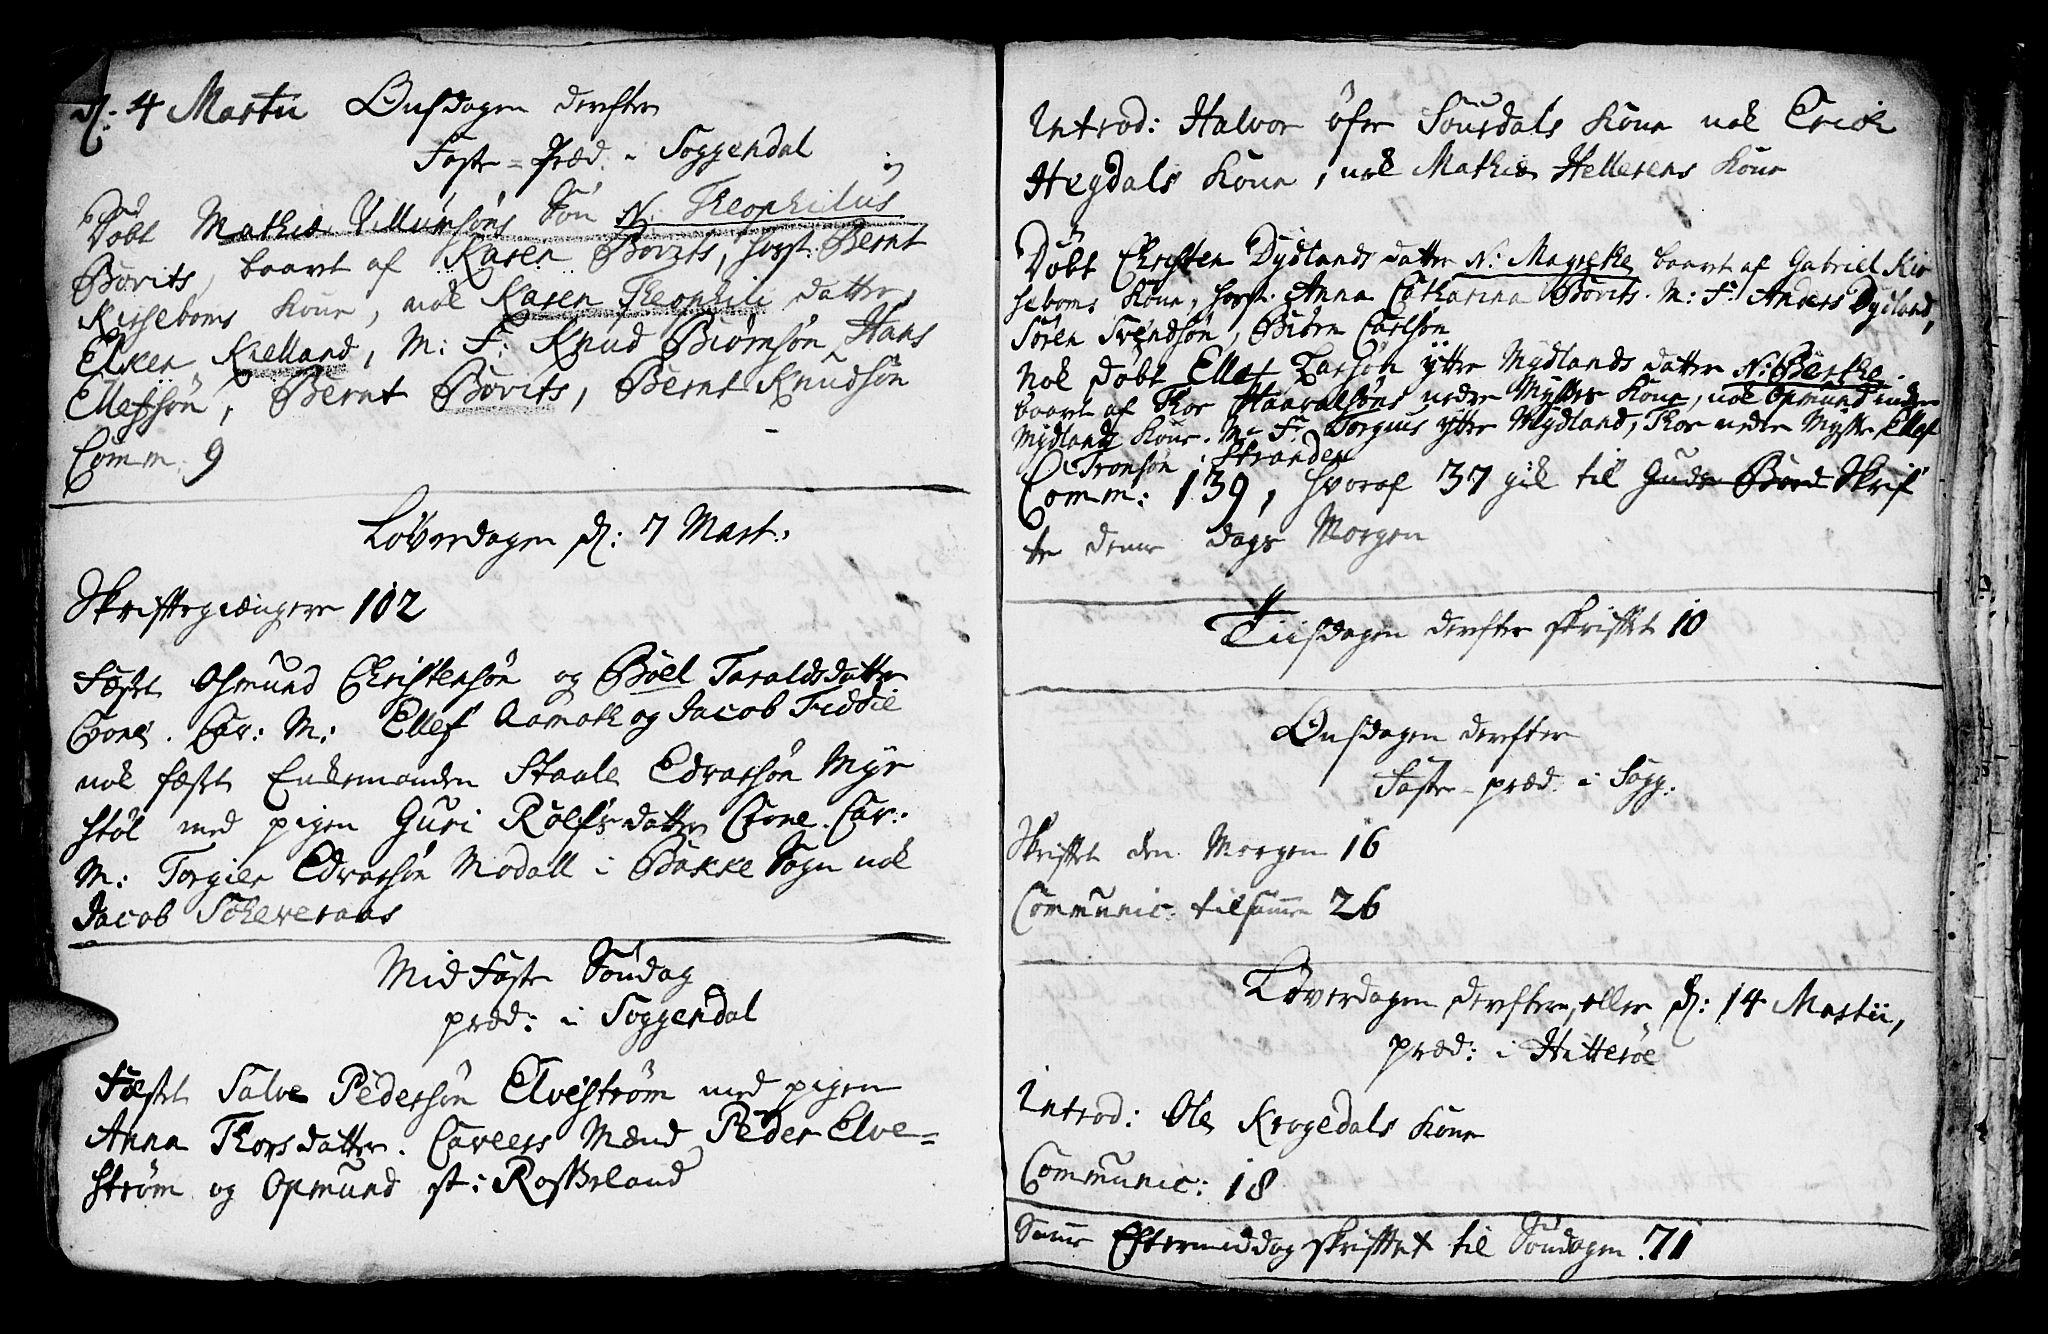 d: 4 Martii Onsdagen derefter
Faste=Præd. i Soggendal
Døbt Mathias Villumsøns Søn N: Theophilus
Bovits, baaret af Karen Bovits, hosst: Bernt
Kirseboms Kone, nok Karen Theophili datter,
Elken Kielland, M: F: Knud Biørnsøn, Hans
Ellefsøn, Bernt Bovits, Bernt Knudsøn
Comm: 9
Løverdagen d: 7 Mart:
Skriftegiængere 102
Fæstet Osmund Christensøn og Böel Taraldsdatter
Cav: M: Ellef Aamot og Jacob Fiddie
nok fæstet Enkemanden Staale Edvarsøn Myr
støl med pigen Guri Rolfsdatter Cav:
M: Torgier Edvarsøn Modall i Bakke Sogn nok
Jacob
Mid Faste Søndag
præd: i Soggendal
Fæstet Salve Pedersøn Elvestrøm med pigen
Anna Thorsdatter. Caveers Mænd Peder Elve=
strøm og Opmund st: Rosseland
Introd: Halvor øfre Sousdals Kone nok Erich
Hegdals Kone, nok Mathias Hellesens Kone
Døbt Christen Dydlands datter N: Magreke, baaret af Gabriel Kir
seboms Kone, hosst: Anna Catharina Bovits. M: F: Anders Dydland,
Søren Svendsøn, Biørn Carlsøn
Nok døbt Ellef Larsøn yttre Mydlands datter N: Berthe
baaret af Thor Haavalsøns nedre Mysses Kone, nok Opmund indre
Mydlands Kone. M: F: Torgius yttre Mydland, Thor nedre Mysse Ellef
Tronsøn i Stranden
Comm: 139, hvoraf 37 gik til Guds Bord Skrif
te denne dags Morgen
Tiisdagen derefter skriftet 10
Onsdagen derefter
Faste-præd. i Sogg:
Skriftet den Morgen 16
Communic: tilsammen 26
Løverdagen derefter, eller d: 14 Martii,
præd: i Hitterøe
Introd: Ole Krogedals Kone
Communic: 18
Samme Eftermiddag skriftet til Søndagen 71